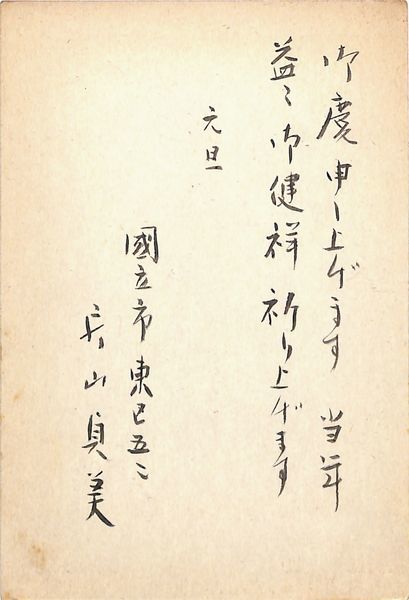 御慶申し上げます 当年
益々御健祥祈り上げます
元旦
國立市東区五二
山貞美